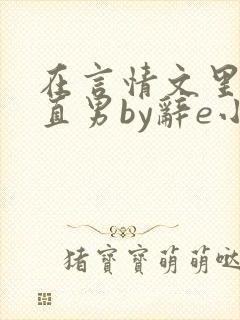 在言情文里
直男by辭e小
猪寶寶萌萌哒